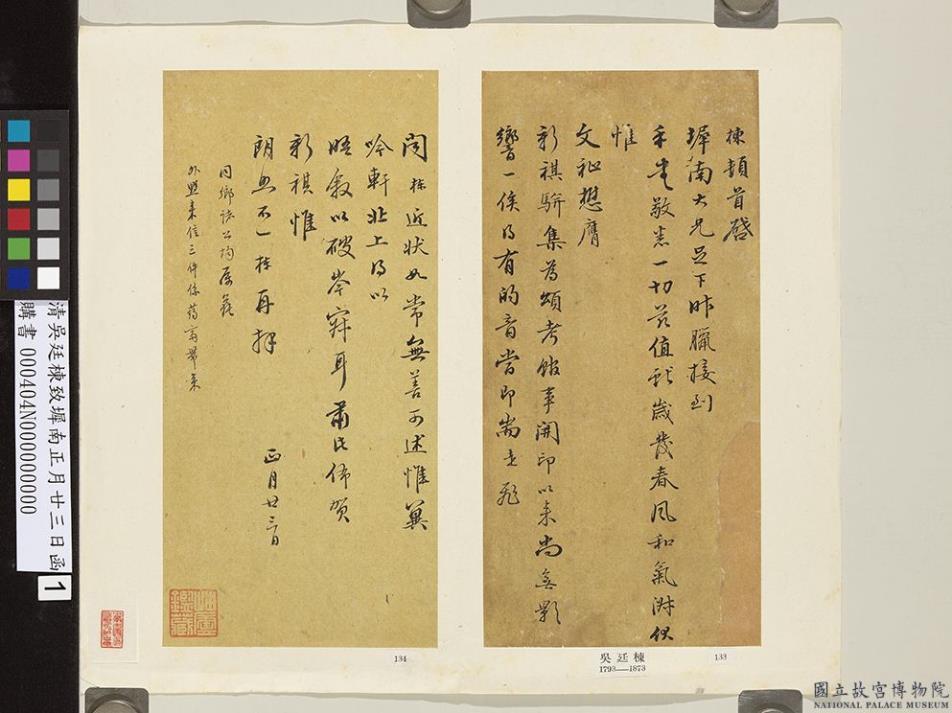 棟頓首啓
墀南大兄足下昨臘接到
手書敬悉一切茲值獻歲發春風和氣淑伏
惟
文祉懋膺
新祺駢集為頌考館事開印以來尚無影
響一俟得有的音當即耑走飛
聞棟近狀如常無善可述惟冀
吟軒北上得以
晤敘以破岑寂耳肅此佈賀
新祺惟
朗照不一棟再拜
正月廿三日
同鄉諸公均
外來信三件係
吳廷棟
1793—1873
133
134
清吳廷棟致墀南正月廿三日函
購書 000404N000000000
1
國立故宮博物院
NATIONAL PALACE MUSEUM